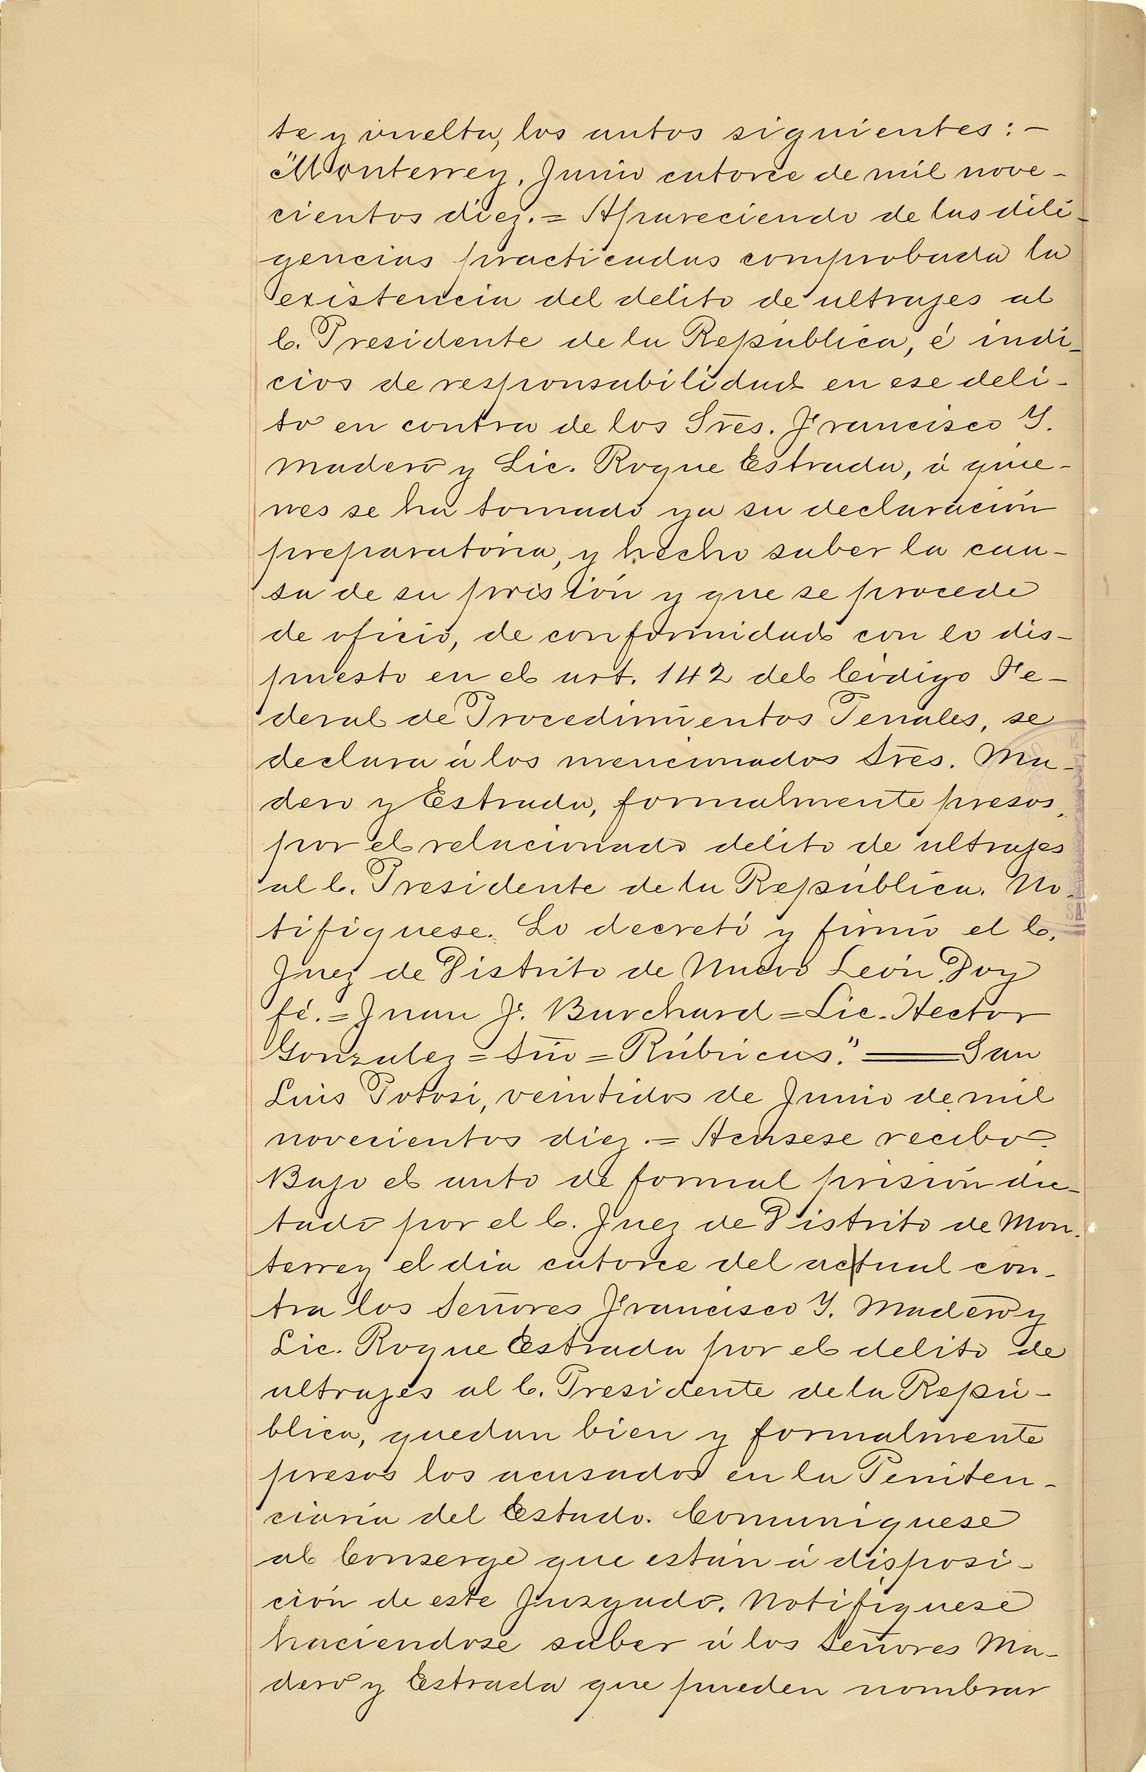 te y vuelta, los autos siguientes: —
"Monterrey, Junio catorce de mil nove-
cientos diez. = Apareciendo de las dili-
gencias practicadas comprobada la
existencia del delito de ultrajes al
C. Presidente de la República, é indi-
cios de responsabilidad en ese deli-
to en contra de los Sres. Francisco Y.
Madero y Lic. Roque Estrada, á quie-
nes se ha tomado ya su declaración
preparatoria, y hecho saber la cau-
sa de su prisión y que se procede
de oficio, de conformidad con lo dis-
puesto en el art. 142 del Código Fe-
deral de Procedimientos Penales, se
declara á los mencionados Sres. Ma-
dero y Estrada, formalmente presos,
por el relacionado delito de ultrajes
al C. Presidente de la República. No-
tifiquese. Lo decretó y firmó el C.
Juez de Distrito de Nuevo León. Doy
fé. = Juan J. Burchard = Lic. Hector
Gonzalez = Srio = Rúbricas." ——— San
Luis Potosí, veintidos de Junio de mil
novecientos diez. = Acusese recibo.
Bajo el auto de formal prisión dic-
tado por el C. Juez de Distrito de Mon-
terrey el dia catorce del actual con-
tra los Señores Francisco Y. Madero y
Lic. Roque Estrada por el delito de
ultrajes al C. Presidente de la Repú-
blica, quedan bien y formalmente
presos los acusados en la Peniten-
ciaría del Estado. Comuníquese
al Conserge que están á disposi-
ción de este Juzgado. Notifíquese
haciendose saber á los Señores Ma-
dero y Estrada que pueden nombrar